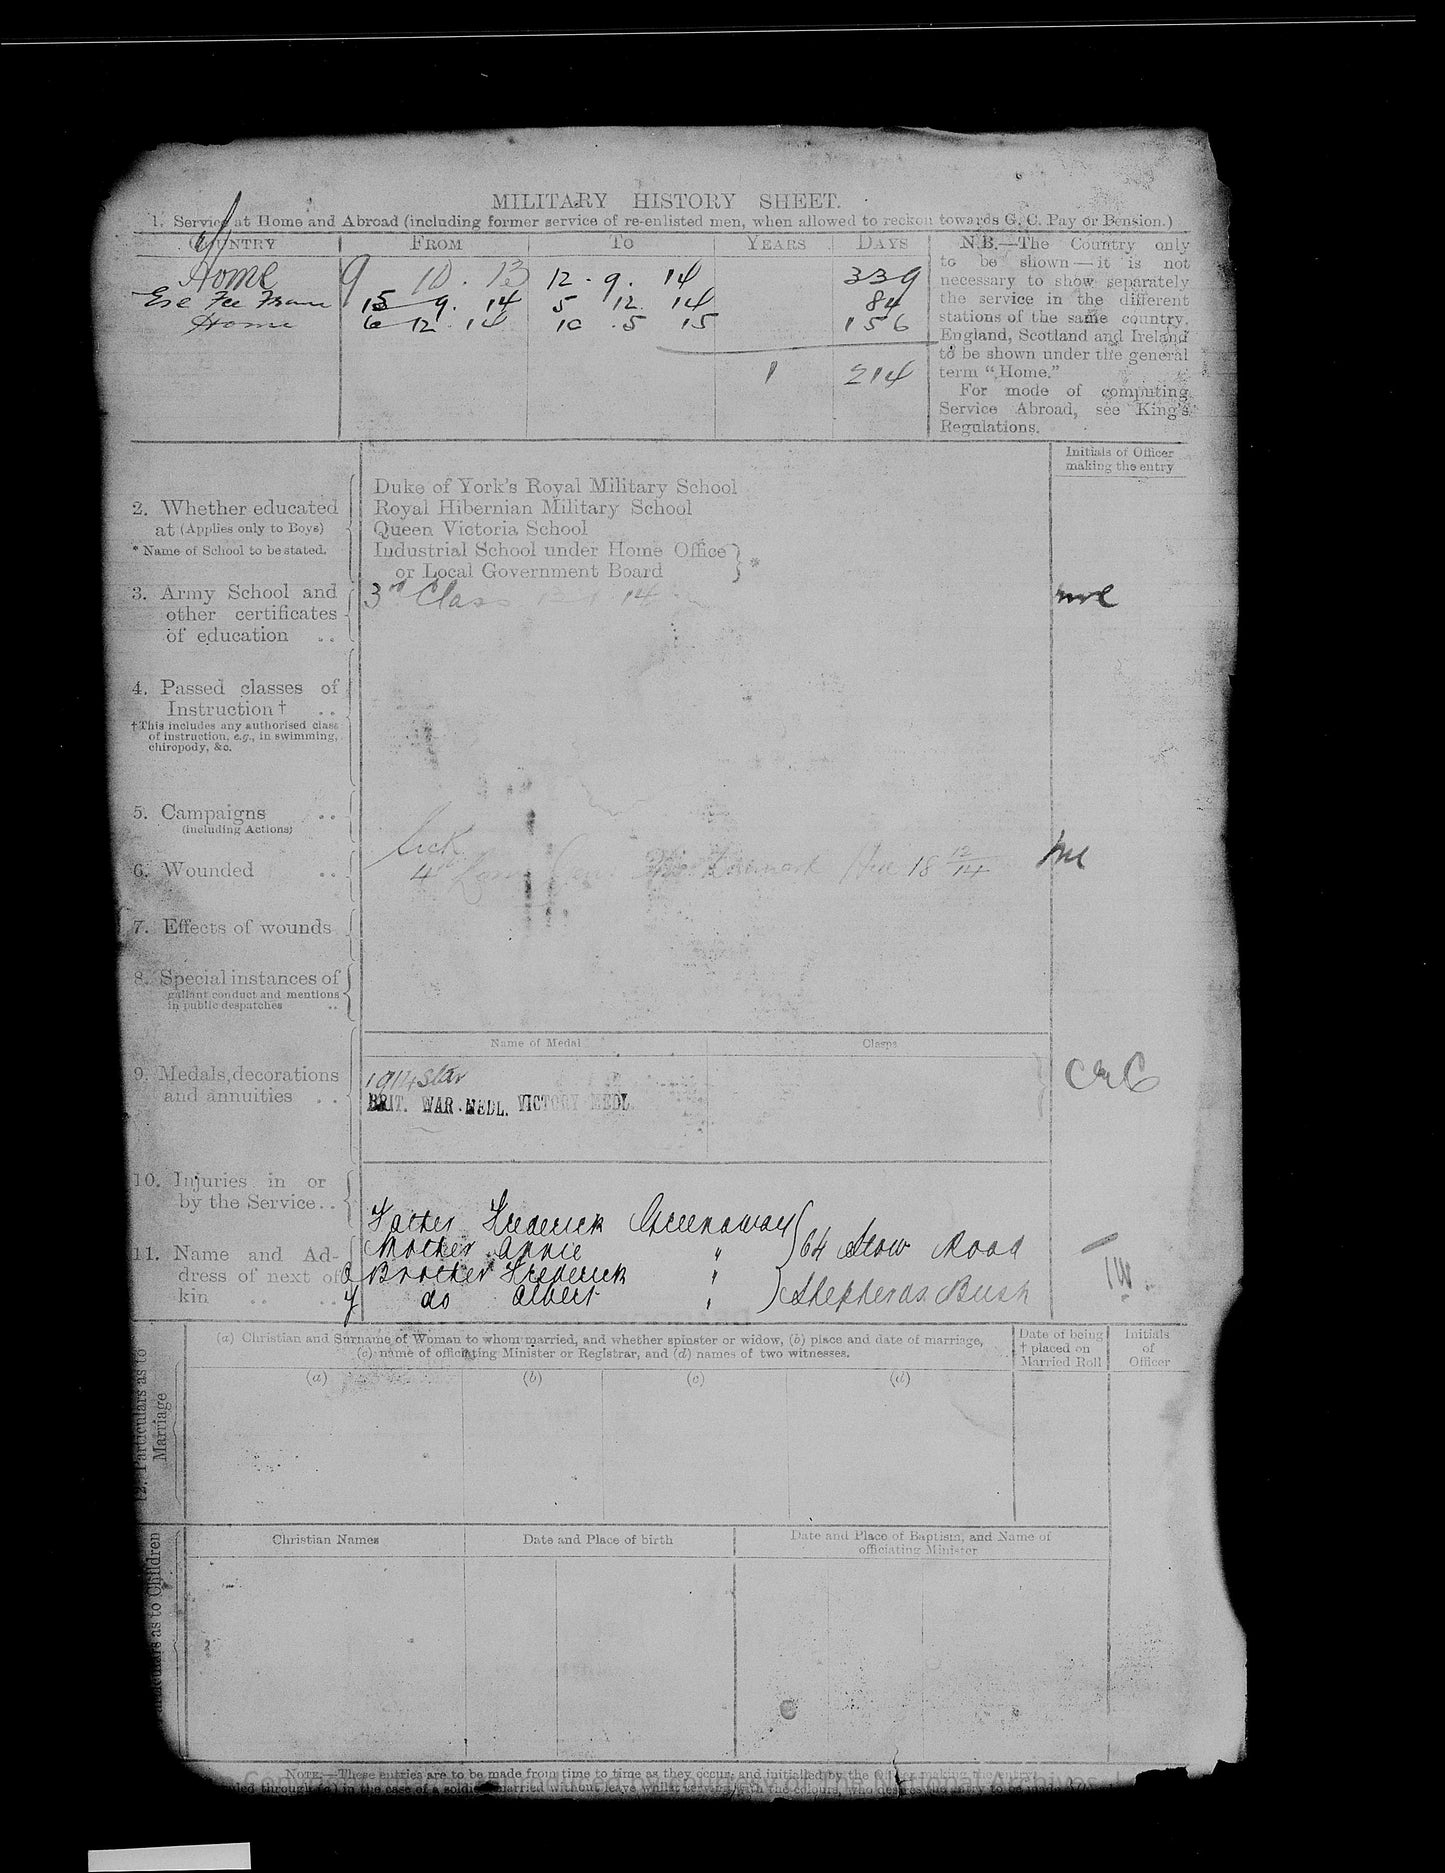 MILITARY HISTORY SHEET.
1. Service at Home and Abroad (including former service of re-enlisted men, when allowed to reckon towards G. C. Pay or Pension.)
COUNTRY FROM TO YEARS DAYS
Home 9 10 . 13 12 . 9 . 14 339
15 9 . 14 5 12 14 84
Home 6 12 . 14 10 . 5 15 156
1 214
N.B.—The Country only
to be shown—it is not
necessary to show separately
the service in the different
stations of the same country.
England, Scotland and Ireland
to be shown under the general
term "Home."
For mode of computing
Service Abroad, see King's
Regulations.
Initials of Officer
making the entry
2. Whether educated
at (Applies only to Boys)
* Name of School to be stated.
Duke of York's Royal Military School
Royal Hibernian Military School
Queen Victoria School
Industrial School under Home Office
or Local Government Board } *
3. Army School and
other certificates
of education ..
3rd Class 14
4. Passed classes of
Instruction † ..
† This includes any authorised class
of instruction, e.g., in swimming,
chiropody, &c.
5. Campaigns ..
(including Actions)
Sick
6. Wounded ..
4th 18 12/14
7. Effects of wounds
8. Special instances of
gallant conduct and mentions
in public despatches ..
Name of Medal Clasps
9. Medals, decorations
and annuities ..
1914 Star
BRIT. WAR MEDL. VICTORY MEDL.
10. Injuries in or
by the Service ..
11. Name and Ad-
dress of next of
kin .. ..
Father Frederick Greenaway
Mother Annie " 64 Stow Road
Brother Frederick "
do Albert " Shepherds Bush
12. Particulars as to
Marriage
(a) Christian and Surname of Woman to whom married, and whether spinster or widow, (b) place and date of marriage,
(c) name of officiating Minister or Registrar, and (d) names of two witnesses.
Date of being
† placed on
Married Roll
Initials
of
Officer
(a) (b) (c) (d)
as to Children
Christian Names Date and Place of birth
Date and Place of Baptism, and Name of
officiating Minister
NOTE.—These entries are to be made from time to time as they occur, and initialled by the
through (a) in the case of a soldier married without leave whilst serving with the colours, who desires